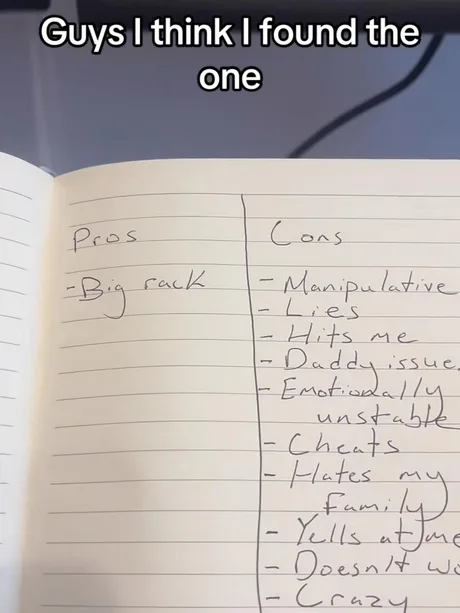 Guys I think I found the
one
Pros
Cons
- Big rack
- Manipulative
- Lies
- Hits me
- Daddy issue
- Emotionally
unstable
- Cheats
- Hates my
Family
- Yells at me
- Doesn't
- Crazy